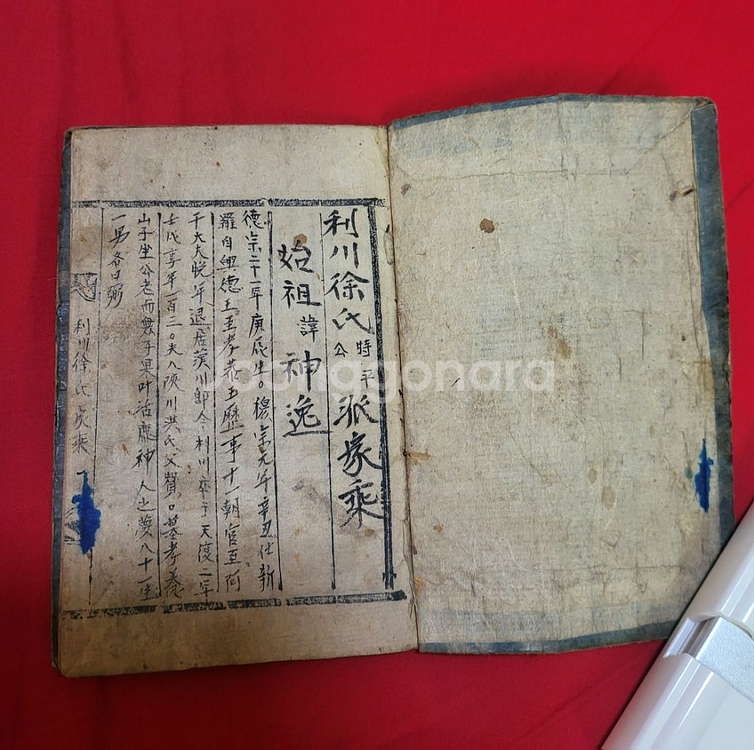 利川徐氏時平公派家乘
始祖諱神逸
德宗二十一年庚辰生。穆宗元年辛丑仕新
羅自興德王至孝恭王歷事十一朝官至阿
干大夫晚年退居演川卽今利川卒于天復二年
壬戌享年一百三。夫人演川洪氏父贊。墓孝養
山子坐公老而無子果叶活鹿神人之夢八十一生
一男名曰弼
利川徐氏家乘
joonggonara